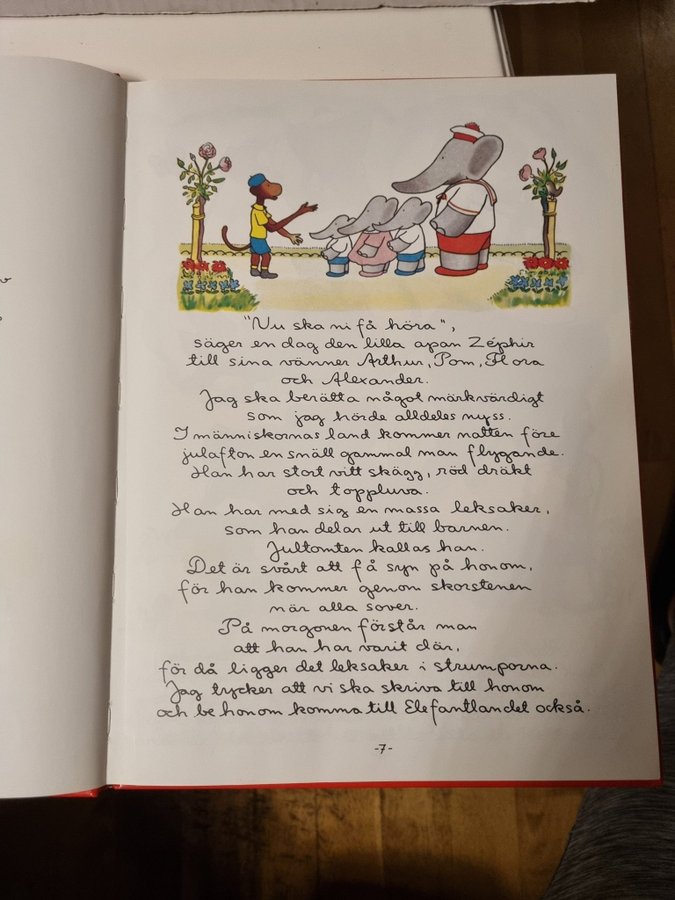 "Nu ska ni få höra",
säger en dag den lilla apan Zéphir
till sina vänner Arthur, Pom, Flora
och Alexander.
Jag ska berätta något märkvärdigt
som jag hörde alldeles nyss.
I människornas land kommer natten före
julafton en snäll gammal man flygande.
Han har stort vitt skägg, röd dräkt
och toppluva.
Han har med sig en massa leksaker,
som han delar ut till barnen.
Jultomten kallas han.
Det är svårt att få syn på honom,
för han kommer genom skorstenen
när alla sover.
På morgonen förstår man
att han har varit där,
för då ligger det leksaker i strumporna.
Jag tycker att vi ska skriva till honom
och be honom komma till Elefantlandet också.
-7-